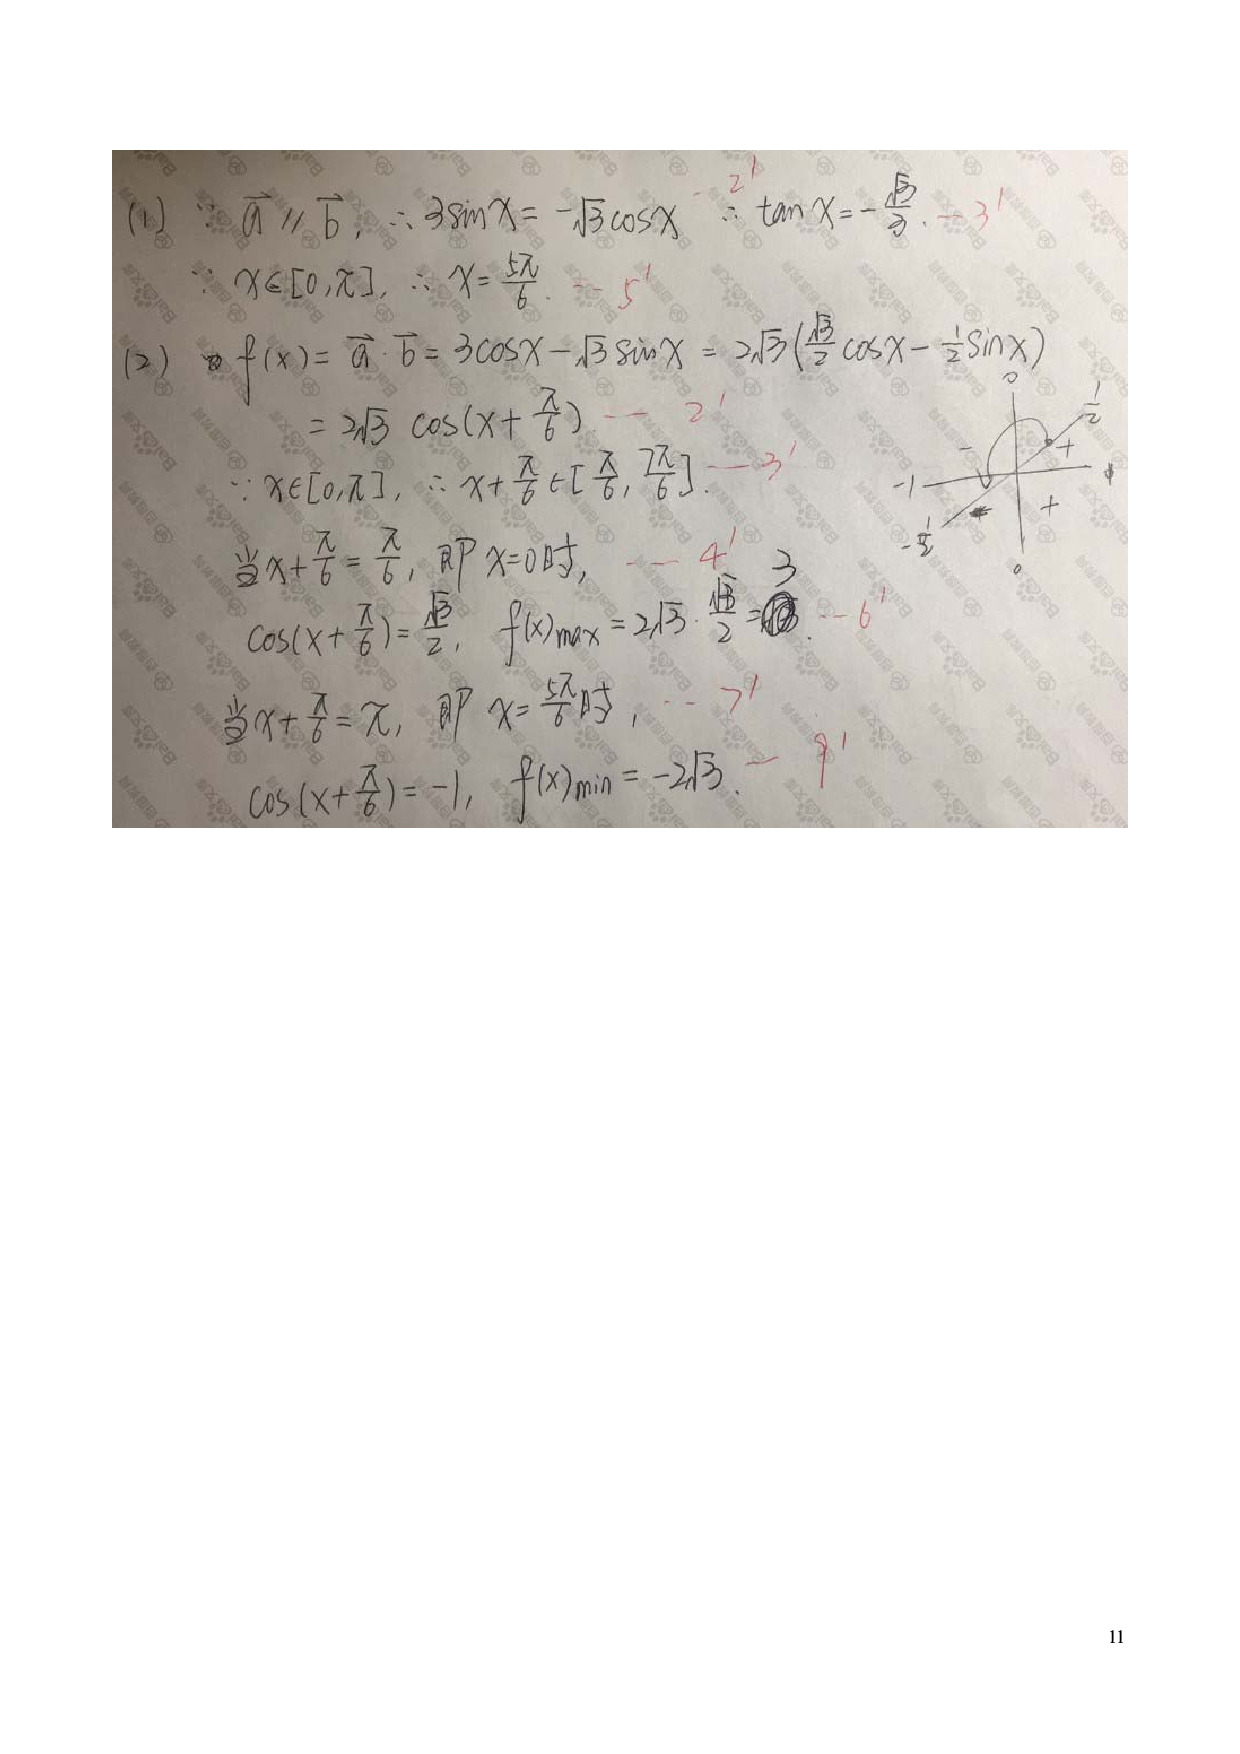 (1) ∵ a⃗ // b⃗, ∴ 3sinx = -√3cosx --2' ∴ tanx = -√3/3. --3'
∵ x∈[0,π], ∴ x = 5π/6. --5'
(2) f(x) = a⃗·b⃗ = 3cosx - √3sinx = 2√3(√3/2 cosx - 1/2 sinx)
= 2√3 cos(x+π/6) -- 2'
∵ x∈[0,π], ∴ x+π/6 ∈ [π/6, 7π/6]. --3'
当x+π/6 = π/6, 即 x=0时, -- 4'
cos(x+π/6) = √3/2, f(x)max = 2√3·√3/2 = 3. --6'
当x+π/6 = π, 即 x=5π/6时, --7'
cos(x+π/6) = -1, f(x)min = -2√3. -- 9'
0
1/2
- +
-1
+
0
11